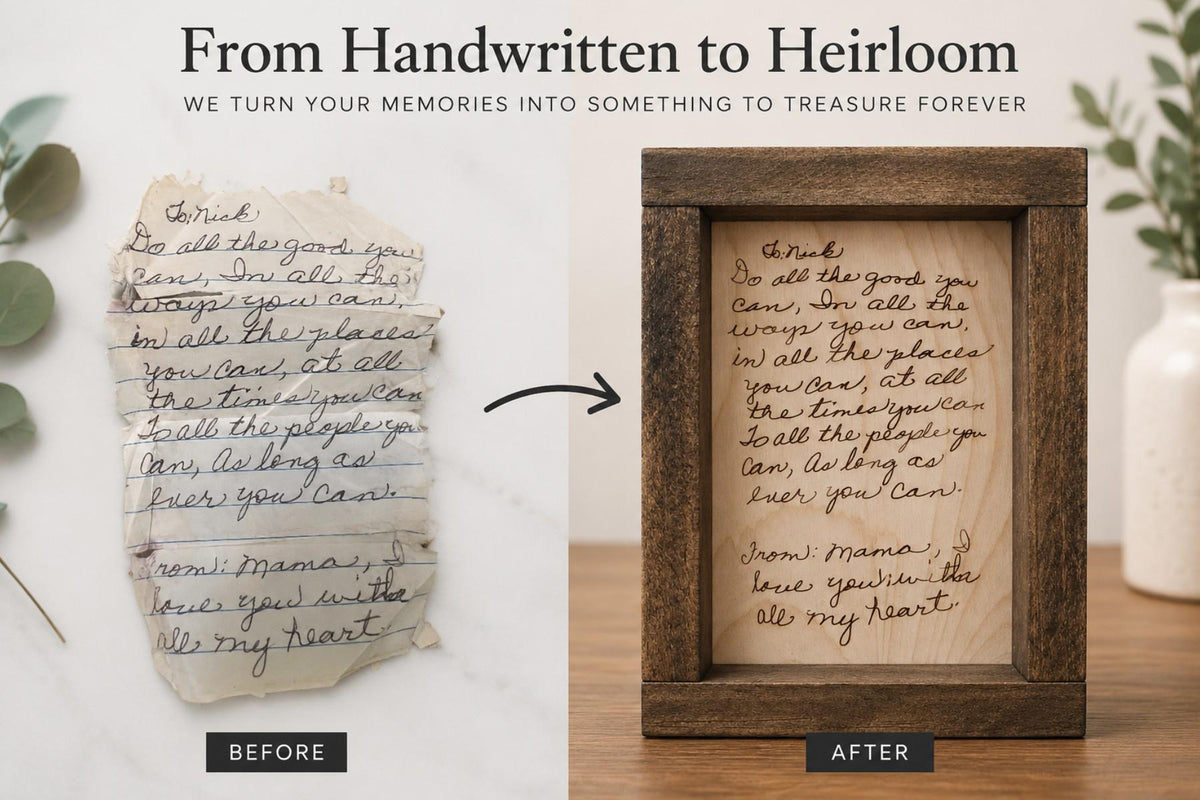 From Handwritten to Heirloom
WE TURN YOUR MEMORIES INTO SOMETHING TO TREASURE FOREVER
To: Nick
Do all the good you
can, In all the
ways you can,
in all the places
you can, at all
the times you can
To all the people you
Can, As long as
ever you Can.
From: Mama, I
love you with
all my heart.
BEFORE
To: Nick
Do all the good you
can, In all the
ways you can,
in all the places
you can, at all
the times you can
To all the people you
Can, As long as
ever you Can.
From: Mama, I
love you with
all my heart.
AFTER